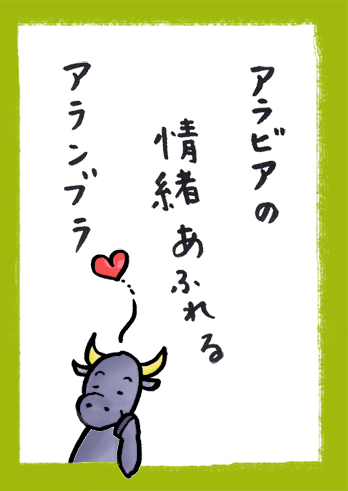 アラビアの
情緒あふれる
アランブラ